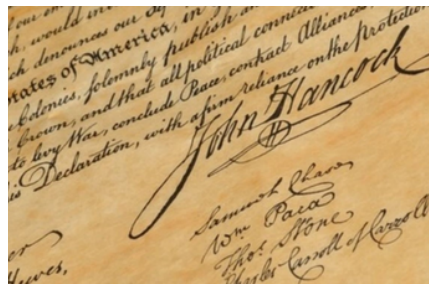 our
would in
ch denounces our
States of America, in
Colonies, solemnly publish and
Crown, and that all political connect
to levy War, conclude Peace, contract Alliances,
is Declaration, with a firm reliance on the protection
John Hancock
Samuel Chase
Wm. Paca
Thos. Stone
Charles Carroll of Carroll